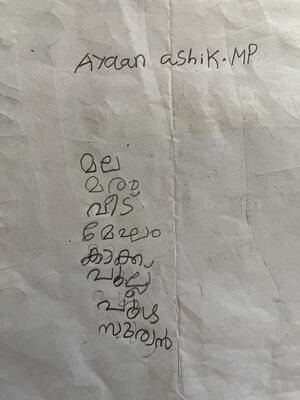 Ayaan ashik.MP
മല
മരം
വീട്
മേഘം
കാക്ക
പുല്ല്
പുഴ
സൂര്യൻ